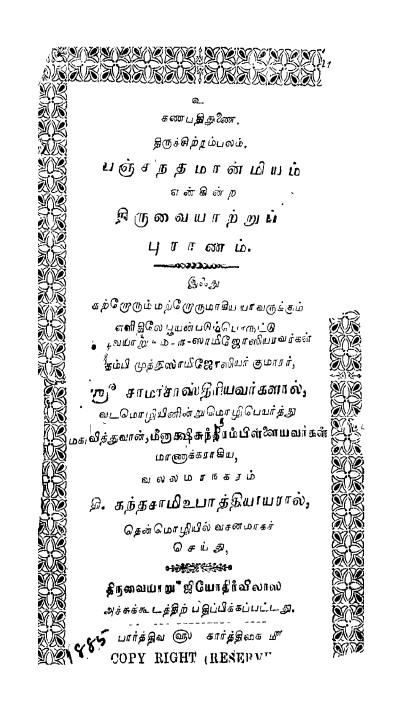 உ
கணபதிதுணை.
திருச்சிற்றம்பலம்.
பஞ்சநதமான்மியம்
என்கின்ற
திருவையாற்றுப்
புராணம்.
இஃது
கற்றோரும்மற்றோருமாகிய யாவருக்கும்
எளிதிலே பயன்படும்பொருட்டு
சாமிஜோஸியரவர்கள்
தம்பி முத்துஸாமிஜோஸியர் குமாரர்,
ஸ்ரீ சாமாசாஸ்திரியவர்களால்,
வடமொழியினின்று மொழிபெயர்த்து
மகாவித்துவான், மீனாக்ஷிசுந்திரம்பிள்ளையவர்கள்
மாணாக்கராகிய,
வல்லமாநகரம்
தி. கந்தசாமிஉபாத்தியாயரால்,
தென்மொழியில் வசனமாகச்
செய்து,
திருவையாறு ஜியோதிர்விலாஸ
அச்சுக்கூடத்திற் பதிப்பிக்கப்பட்டது.
பார்த்திப ௵ கார்த்திகை ௴
1885
COPY RIGHT (RESERVE